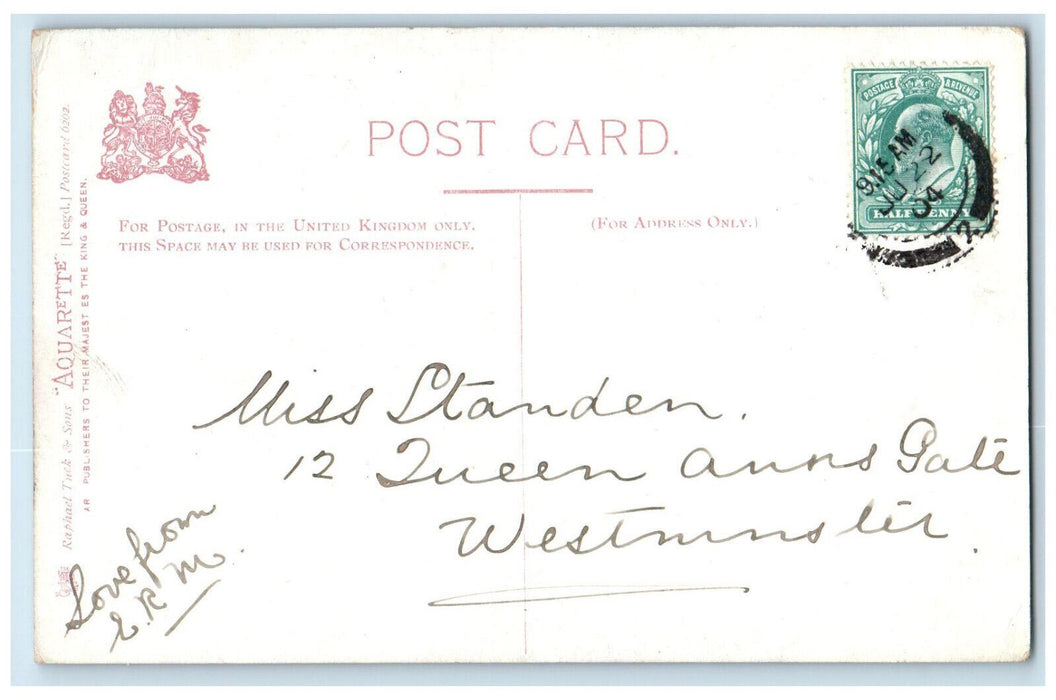 POST CARD.
FOR POSTAGE, IN THE UNITED KINGDOM ONLY.
THIS SPACE MAY BE USED FOR CORRESPONDENCE.
(FOR ADDRESS ONLY.)
POSTAGE & REVENUE
HALFPENNY
9.15 AM
22
04
2
Raphael Tuck & Sons "AQUARETTE" [Regd.] Postcard 6202.
PUBLISHERS TO THEIR MAJESTIES THE KING & QUEEN.
Miss Standen.
12 Queen Anns Gate
Westminster.
Love from
E.R.M.